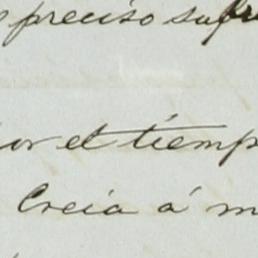 preciso suf
or el tiemp
Creia á m